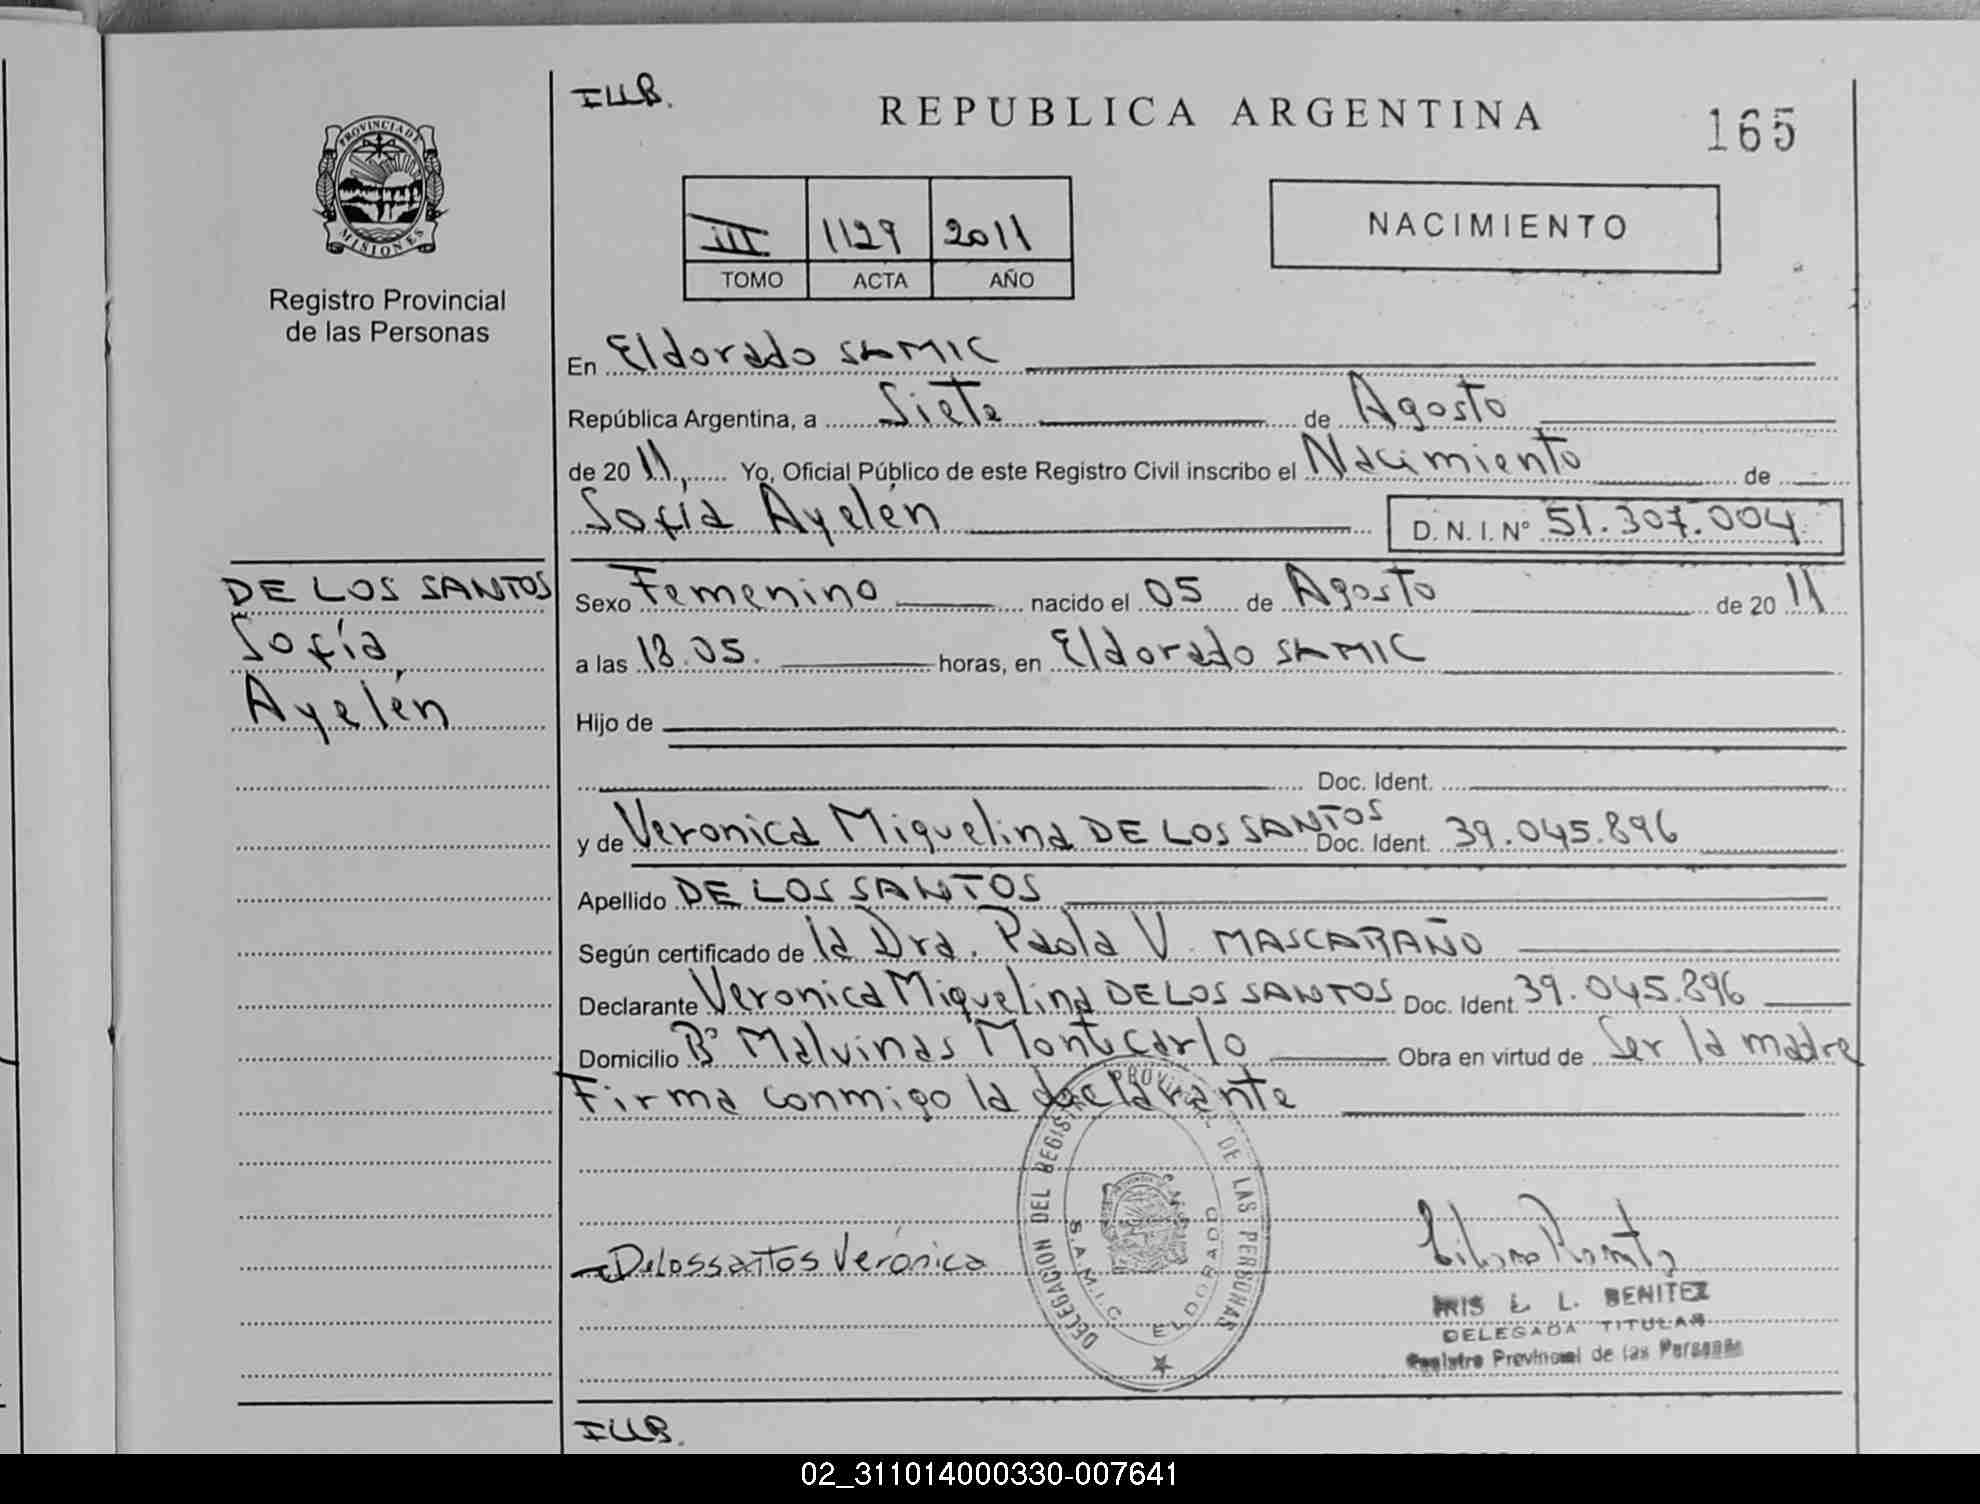 ILLB.
REPUBLICA ARGENTINA
165
PROVINCIA DE
MISIONES
Registro Provincial
de las Personas
III 1129 2011
TOMO ACTA AÑO
NACIMIENTO
En Eldorado SAMIC
República Argentina, a Siete de Agosto
de 2011, Yo, Oficial Público de este Registro Civil inscribo el Nacimiento de
Sofía Ayelén D. N. I. N° 51.307.004
DE LOS SANTOS
Sofía,
Ayelén
Sexo Femenino nacido el 05 de Agosto de 2011
a las 18.05. horas, en Eldorado SAMIC
Hijo de
Doc. Ident.
y de Veronica Miquelina DE LOS SANTOS Doc. Ident. 39.045.896
Apellido DE LOS SANTOS
Según certificado de la Dra. Paola V. MASCARAÑO
Declarante Veronica Miquelina DE LOS SANTOS Doc. Ident. 39.045.896
Domicilio B° Malvinas Montecarlo Obra en virtud de Ser la madre
Firma conmigo la declarante
DELEGACION DEL REGISTRO PROVINCIAL DE LAS PERSONAS
S.A.M.I.C. ELDORADO
Delossantos Verónica
IRIS L. L. BENITEZ
DELEGADA TITULAR
Registro Provincial de las Personas
ILLB.
02_311014000330-007641